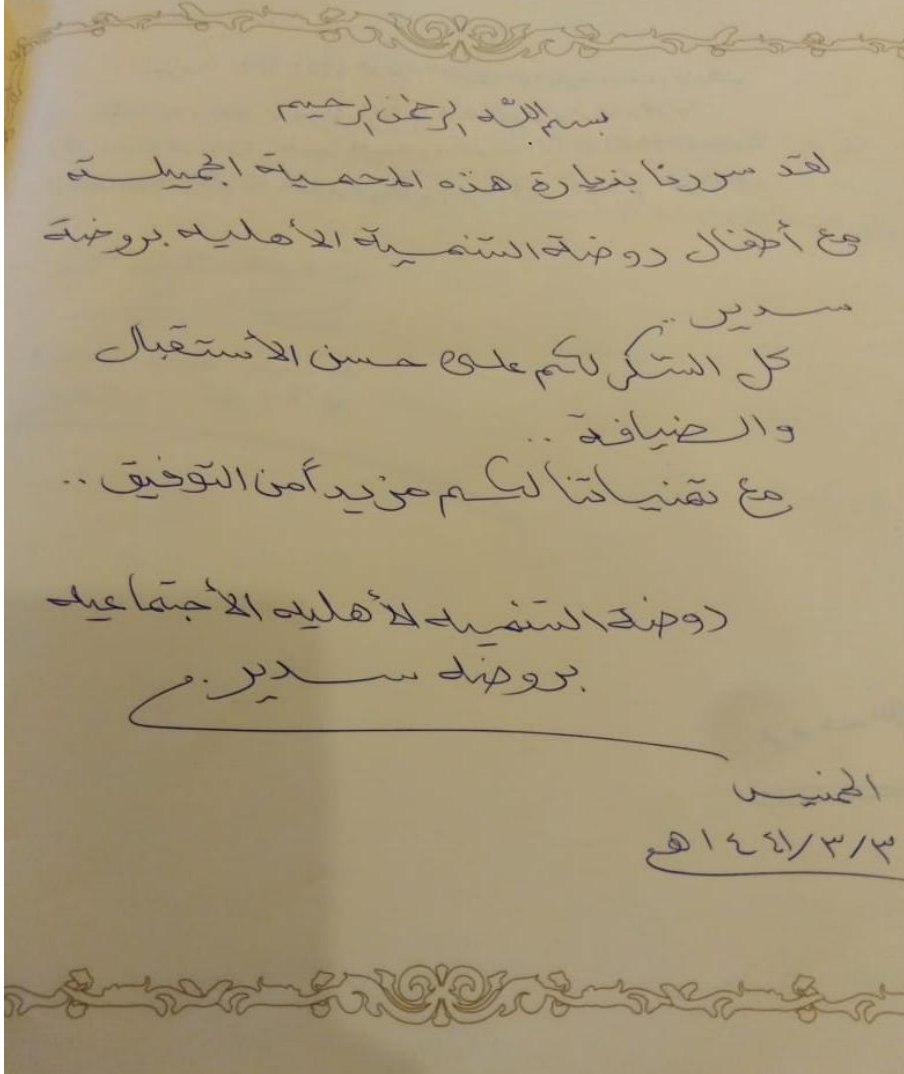 بسم الله الرحمن الرحيم
لقد سررنا بزيارة هذه المحمية الجميلة
مع أطفال روضة التنمية الأهليه بروضة
سدير ..
كل الشكر لكم على حسن الأستقبال
والضيافة ..
مع تمنياتنا لكم مزيداً من التوفيق ..
روضة التنميه الأهليه الأجتماعيه
بروضه سدير .
الخميس
٣/٣/١٤٤١هـ